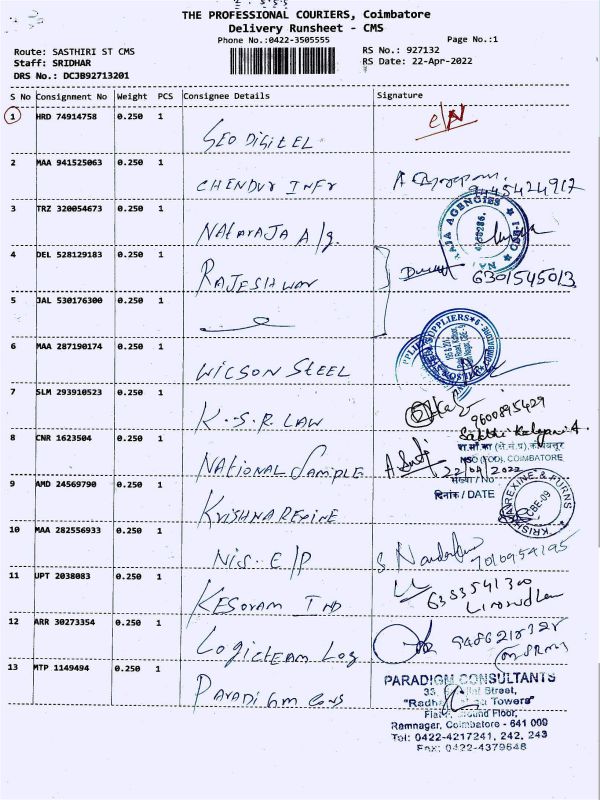 THE PROFESSIONAL COURIERS, Coimbatore
Delivery Runsheet - CMS
Phone No.:0422-3505555
Page No.:1
Route: SASTHIRI ST CMS
RS No.: 927132
Staff: SRIDHAR
RS Date: 22-Apr-2022
DRS No.: DCJB92713201
S No Consignment No Weight PCS Consignee Details Signature
1 HRD 74914758 0.250 1
GEO DIGITEL
2 MAA 941525063 0.250 1
CHENDUR INFR
9445424917
3 TRZ 320054673 0.250 1
NATARAJA A/g.
AGENCIES
4 DEL 528129183 0.250 1
RAJESHWARI
6301545013
5 JAL 530176300 0.250 1
6 MAA 287190174 0.250 1
WICSON STEEL
SUPPLIERS
COIMBATORE
7 SLM 293910523 0.250 1
K.S.R. LAW
9600895429
8 CNR 1623504 0.250 1
NATIONAL SAMPLE
NSO (FOD), COIMBATORE
22/04/2022
संख्या / No
9 AMD 24569790 0.250 1
दिनांक / DATE
KRISHNA REXINE
KRISHNA REXINE & FURNS
CBE-09
10 MAA 282556933 0.250 1
NIS. E/P
7010954195
11 UPT 2038083 0.250 1
KESORAM IND
6383541300
12 ARR 30273354 0.250 1
LOGICTEAM LOG
9486218328
13 MTP 1149494 0.250 1
PARADIGM CONS
PARADIGM CONSULTANTS
Street,
Towers"
Ground Floor,
Ramnagar, Coimbatore - 641 009
Tel: 0422-4217241, 242, 243
Fax: 0422-4379648